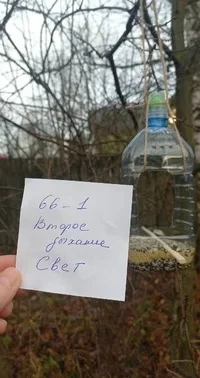 66-1
Второе
дыхание
Свет